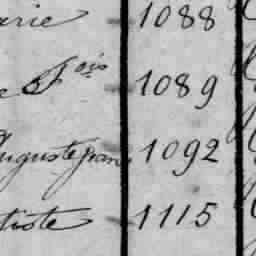 arie 1088
e fois 1089
Auguste fran 1092
tiste 1115